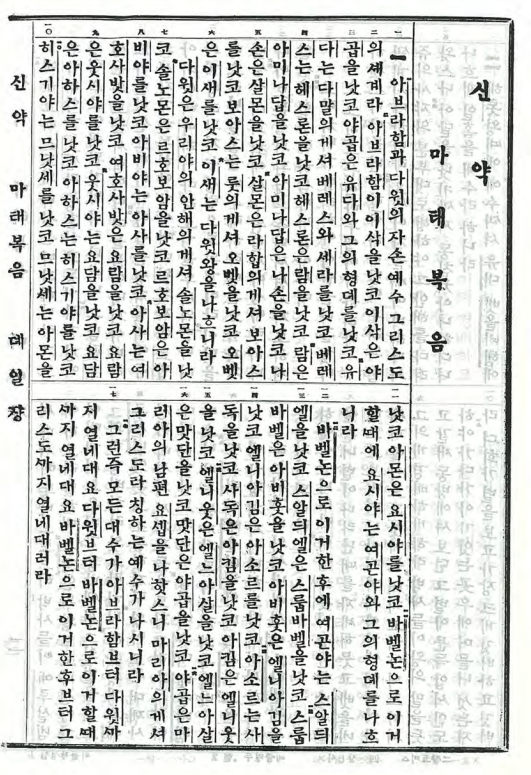 신약
마태복음
一 아브라함과 다윗의 자손 예수 그리스도
二 의 셰계라 아브라함이 이삭을 낫코 이삭은 야
곱을 낫코 야곱은 유다와 그의 형뎨를 낫코 유
三 다는 다말의게셔 베레스와 셰라를 낫코 베레
스는 헤스론을 낫코 헤스론은 람을 낫코 람은
四 아미나답을 낫코 아미나답은 나손을 낫코 나
五 손은 살몬을 낫코 살몬은 라합의게셔 보아스
를 낫코 보아스는 룻의게셔 오벳을 낫코 오벳
六 은 이새를 낫코 이새는 다윗 왕을 나흐니라
다윗은 우리야의 안해의게셔 솔노몬을 낫
七 코 솔노몬은 르호보암을 낫코 르호보암은 아
八 비야를 낫코 아비야는 아사를 낫코 아사는 여
호사밧을 낫코 여호사밧은 요람을 낫코 요람
九 은 웃시야를 낫코 웃시야는 요담을 낫코 요담
은 아하스를 낫코 아하스는 히스기야를 낫코
一〇 히스기야는 므낫셰를 낫코 므낫셰는 아몬을
一一 낫코 아몬은 요시야를 낫코 바벨논으로 이거
할 때에 요시야는 여곤야와 그의 형뎨를 나흐
니라
一二 바벨논으로 이거한 후에 여곤야는 스알듸
엘을 낫코 스알듸엘은 스룹바벨을 낫코 스룹
一三 바벨은 아비훗을 낫코 아비훗은 엘니아김을
一四 낫코 엘니아김은 아소르를 낫코 아소르는 사
독을 낫코 사독은 아킴을 낫코 아킴은 엘니웃
一五 을 낫코 엘니웃은 엘느아살을 낫코 엘느아살
一六 은 맛단을 낫코 맛단은 야곱을 낫코 야곱은 마
리아의 남편 요셉을 나핫스니 마리아의게셔
그리스도라 칭하는 예수가 나시니라
一七 그런즉 모든 대수가 아브라함브터 다윗까
지 열네 대요 다윗브터 바벨논으로 이거할 때
까지 열네 대요 바벨논으로 이거한 후브터 그
리스도까지 열네 대러라
신약 마태복음 뎨일쟝